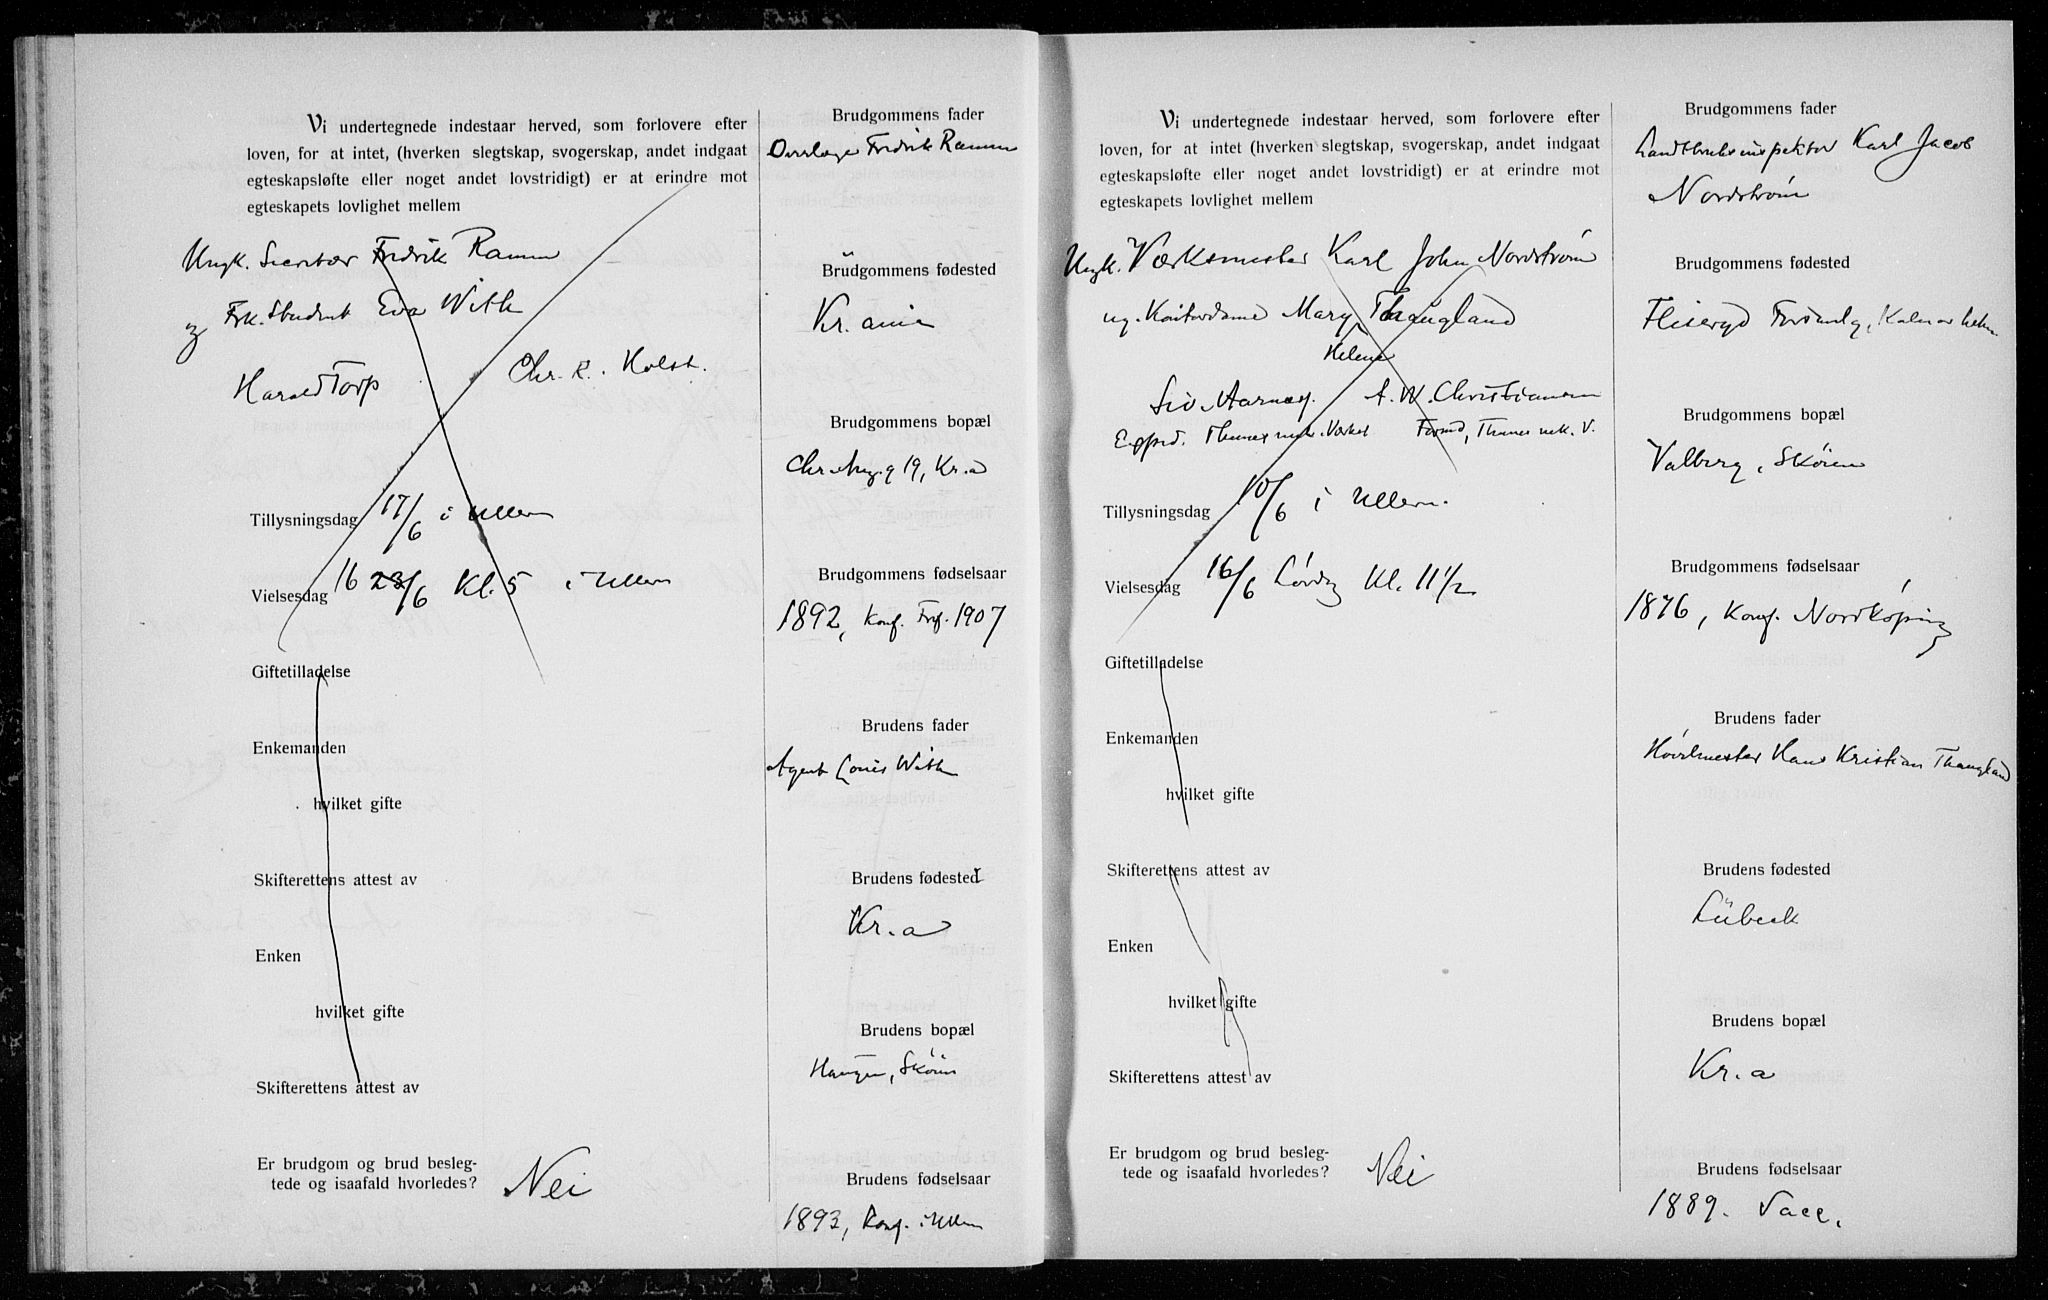 Vi undertegnede indestaar herved, som forlovere efter
loven, for at intet, (hverken slegtskap, svogerskap, andet indgaat
egteskapsløfte eller noget andet lovstridigt) er at erindre mot
egteskapets lovlighet mellem
Ungk. Fredrik Ramm
og Frk. Student Eva With
Harald Torp Chr. R. Holst.
Tillysningsdag 17/6 i Ullern
Vielsesdag 16 23/6 Kl. 5 i Ullern
Giftetilladelse
Enkemanden
hvilket gifte
Skifterettens attest av
Enken
hvilket gifte
Skifterettens attest av
Er brudgom og brud besleg-
tede og isaafald hvorledes? Nei
Brudgommens fader
Overlæge Fredrik Ramm
Brudgommens fødested
Kr.ania
Brudgommens bopæl
19, Kr.a
Brudgommens fødselsaar
1892, Konf. 1907
Brudens fader
Agent Louis With
Brudens fødested
Kr.a
Brudens bopæl
Haugen, Skøien
Brudens fødselsaar
1893, Konf. i Ullern
Vi undertegnede indestaar herved, som forlovere efter
loven, for at intet, (hverken slegtskap, svogerskap, andet indgaat
egteskapsløfte eller noget andet lovstridigt) er at erindre mot
egteskapets lovlighet mellem
Ungk. Værksmester Karl John Nordstrøm
og Kontordame Mary Thaugland
Helene
A. W. Christiansen
Tillysningsdag 10/6 i Ullern.
Vielsesdag 16/6 Lørdg Kl. 11 1/2
Giftetilladelse
Enkemanden
hvilket gifte
Skifterettens attest av
Enken
hvilket gifte
Skifterettens attest av
Er brudgom og brud besleg-
tede og isaafald hvorledes? Nei
Brudgommens fader
Landbruksinspektør Karl Jacob
Nordstrøm
Brudgommens fødested
Kalmar lehn
Brudgommens bopæl
Valberg, Skøien
Brudgommens fødselsaar
1876, Konf. Nordkøping
Brudens fader
Hans Kristian Thaugland
Brudens fødested
Lübeck
Brudens bopæl
Kr.a
Brudens fødselsaar
1889. Vacc.